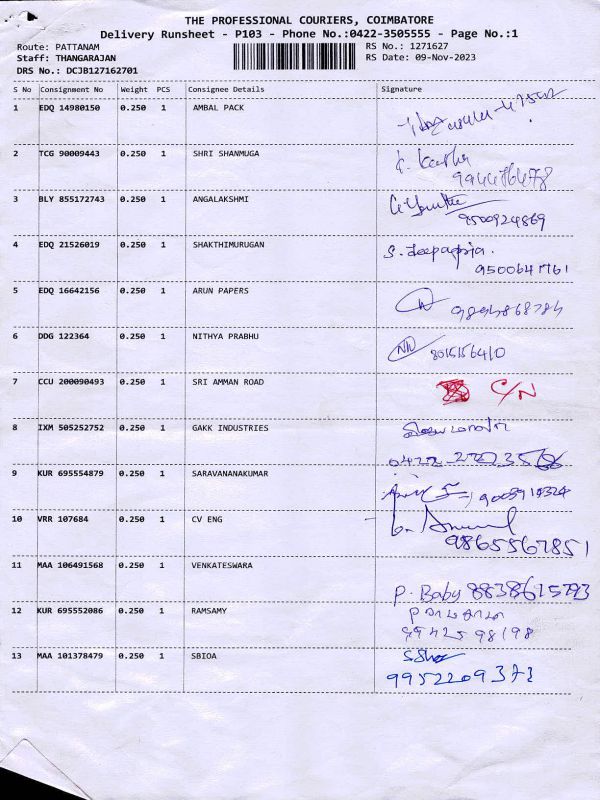 THE PROFESSIONAL COURIERS, COIMBATORE
Delivery Runsheet - P103 - Phone No.:0422-3505555 - Page No.:1
Route: PATTANAM RS No.: 1271627
Staff: THANGARAJAN RS Date: 09-Nov-2023
DRS No.: DCJB127162701
S No Consignment No Weight PCS Consignee Details Signature
1 EDQ 14980150 0.250 1 AMBAL PACK
2 TCG 90009443 0.250 1 SHRI SHANMUGA
9944764678
3 BLY 855172743 0.250 1 ANGALAKSHMI
9500924869
4 EDQ 21526019 0.250 1 SHAKTHIMURUGAN
5 EDQ 16642156 0.250 1 ARUN PAPERS
6 DDG 122364 0.250 1 NITHYA PRABHU
7 CCU 200090493 0.250 1 SRI AMMAN ROAD C/N
8 IXM 505252752 0.250 1 GAKK INDUSTRIES
9 KUR 695554879 0.250 1 SARAVANANAKUMAR
10 VRR 107684 0.250 1 CV ENG
9865567851
11 MAA 106491568 0.250 1 VENKATESWARA
P. Baby
12 KUR 695552086 0.250 1 RAMSAMY
9942598198
13 MAA 101378479 0.250 1 SBIOA
9952209373